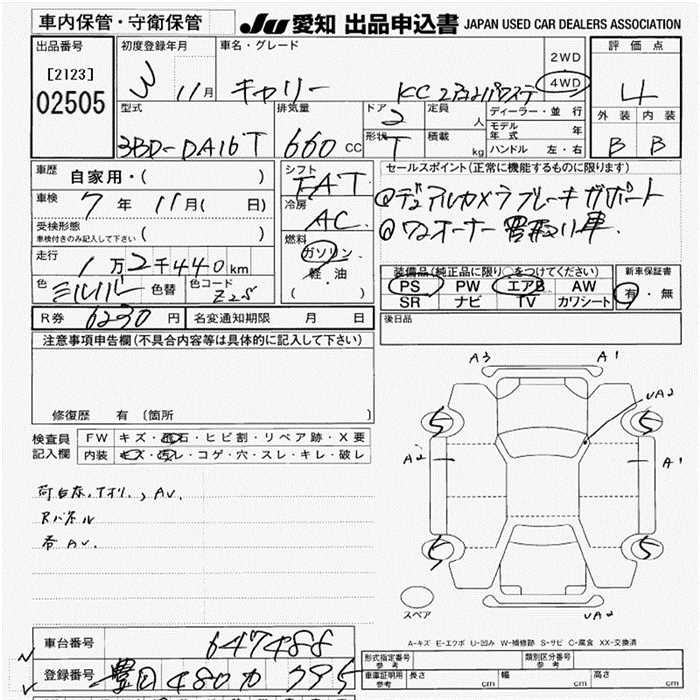 車内保管・守衛保管 JU 愛知 出品申込書 JAPAN USED CAR DEALERS ASSOCIATION
出品番号 初度登録年月 車名・グレード 2WD 評価点
[2123] 11月 キャリー KC 4WD 4
02505 型式 排気量 ドア 2 定員 人 ディーラー・並行 外装 内装
モデル年式 年
3BD-DA16T 660 CC 形状 T 積載 kg ハンドル 左・右 B B
車歴 自家用・( )
シフト FAT
セールスポイント(正常に機能するものに限ります)
車検 7年 11月( 日)
冷房 AC
デュアルカメラブレーキサポート
受検形態
車検付きのみ記入して下さい ( )
燃料 ガソリン
ワンオーナー 買取り車.
走行 1万2千440km
軽油
( )
装備品(純品品に限り○をつけてください) 新車保証書
色 色替 色コード Z2S
PS PW エアB AW 有・無
SR ナビ TV カワシート
R券 6230円 名変通知期限 月 日
後日品
注意事項申告欄(不具合内容等は具体的に記入して下さい)
修復歴 有 (箇所 )
検査員記入欄 FW キズ・飛石・ヒビ割・リペア跡・X要
内装 キズ・汚レ・コゲ・穴・スレ・キレ・破レ
A3 A1
UA2
5 5
A2 A1
5 5
UA2
スペア
A-キズ E-エクボ U-凹み W-補修跡 S-サビ C-腐食 XX-交換済
車台番号 647488
登録番号 豊田 480 カ 795
型式指定番号 参考 類別区分番号 参考
車庫証明用参考 長さ cm 幅 cm 高さ cm